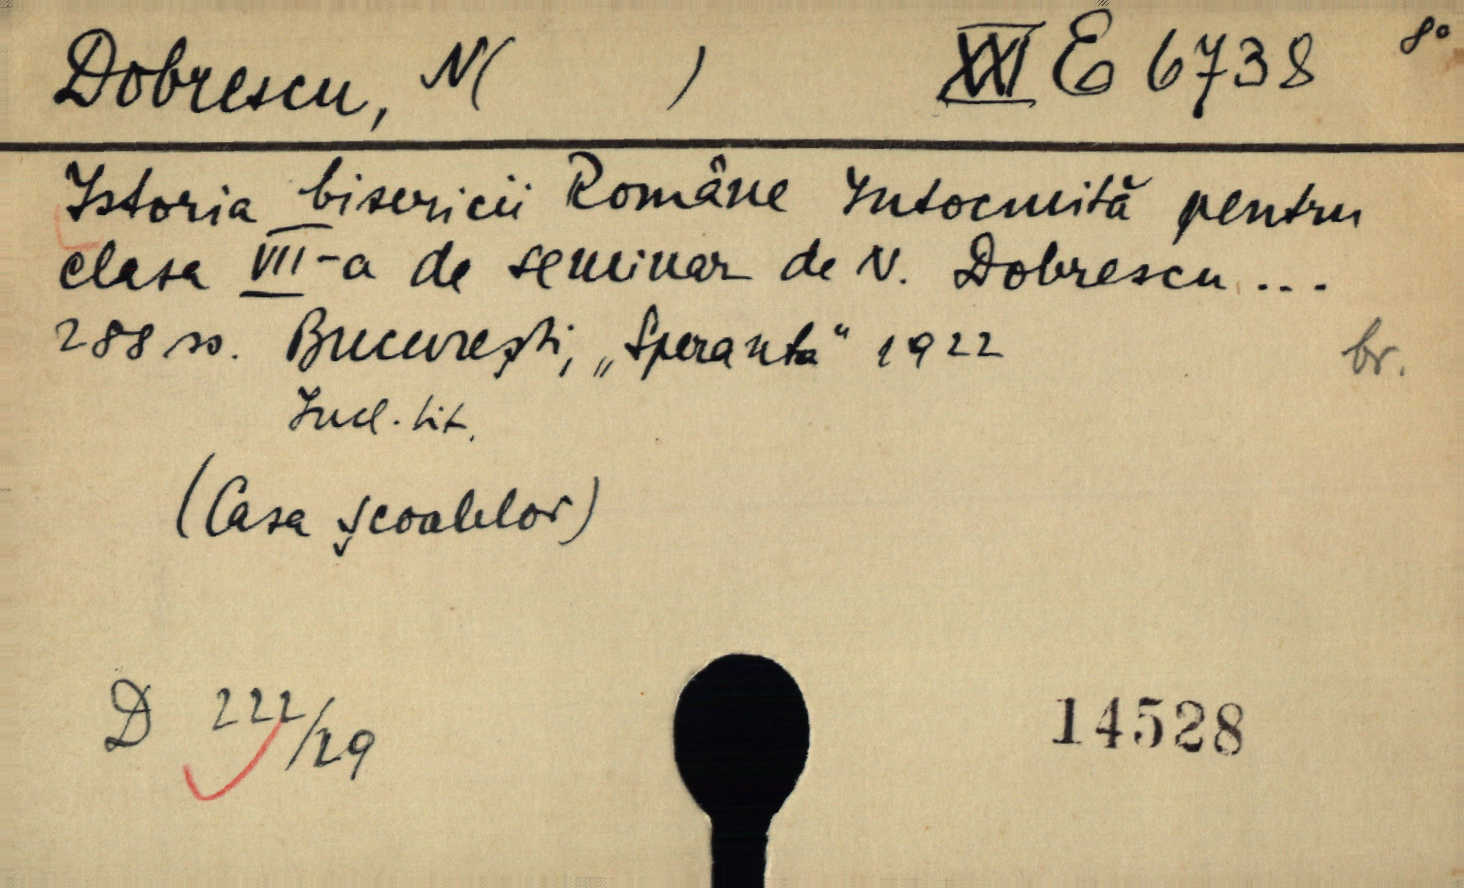 Dobrescu, N( ) XXI E 6738 8°
Istoria bisericii Românе Intocmită pentru
clasa VII-a de seminar de N. Dobrescu ...
288 so. București, „Speranta“ 1922 br.
Incl. tit.
(Casa școalelor)
D 222/29 14528